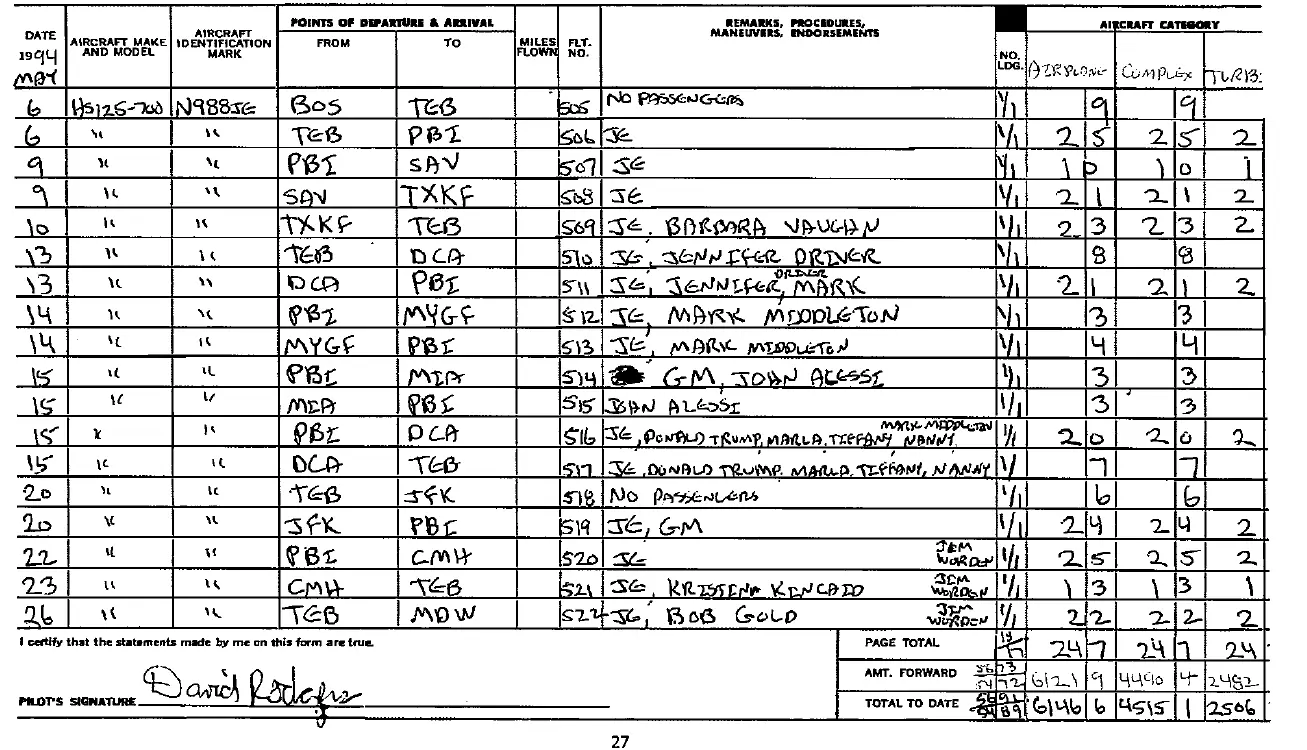 DATE 1994 MAY | AIRCRAFT MAKE AND MODEL | AIRCRAFT IDENTIFICATION MARK | POINTS OF DEPARTURE & ARRIVAL FROM | TO | MILES FLOWN | FLT. NO. | REMARKS, PROCEDURES, MANEUVERS, ENDORSEMENTS | NO. LDG. | AIRCRAFT CATEGORY AIRPLANE | COMPLEX | TURB.
6 HS125-700 N988JE BOS TEB 505 NO PASSENGERS 1/1 9 9
6 " " TEB PBI 506 JE 1/1 2 5 2 5 2
9 " " PBI SAV 507 JE 1/1 1 0 1 0 1
9 " " SAV TXKF 508 JE 1/1 2 1 2 1 2
10 " " TXKF TEB 509 JE, BARBARA VAUGHN 1/1 2 3 2 3 2
13 " " TEB DCA 510 JE, JENNIFER DRIVER 1/1 8 8
13 " " DCA PBI 511 JE, JENNIFER DRIVER, MARK 1/1 2 1 2 1 2
14 " " PBI MYGF 512 JE, MARK MIDDLETON 1/1 3 3
14 " " MYGF PBI 513 JE, MARK MIDDLETON 1/1 4 4
15 " " PBI MIA 514 GM, JOHN ALESSI 1/1 3 3
15 " " MIA PBI 515 JOHN ALESSI 1/1 3 3
15 " " PBI DCA 516 JE, DONALD TRUMP, MARLA, TIFFANY, NANNY MARK MIDDLETON 1/1 2 0 2 0 2
15 " " DCA TEB 517 JE, DONALD TRUMP, MARLA, TIFFANY, NANNY 1/ 7 7
20 " " TEB JFK 518 NO PASSENGERS 1/1 6 6
20 " " JFK PBI 519 JE, GM 1/1 2 4 2 4 2
22 " " PBI CMH 520 JE JIM WORDEN 1/1 2 5 2 5 2
23 " " CMH TEB 521 JE, KRISSINA KINCAID JIM WORDEN 1/1 1 3 1 3 1
26 " " TEB MDW 522 JE, BOB GOLD JIM WORDEN 1/1 2 2 2 2 2
I certify that the statements made by me on this form are true.
PAGE TOTAL 24 7 24 7 24
AMT. FORWARD 5673 6121 9 4490 4 2482
PILOT'S SIGNATURE David Rodgers
TOTAL TO DATE 5691 5489 6146 6 4515 1 2506
27